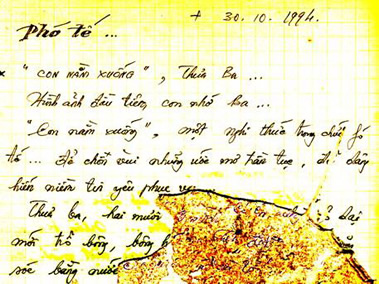 + 30.10.1994.
Phó tế ...
"CON NẰM XUỐNG", Thưa Ba ...
Hình ảnh đầu tiên, con nhớ ba ...
"Con nằm xuống", một nghi thức trong chức
tế ... Để chôn vùi những ước mơ trần tục, để dâng
hiến niềm tin yêu phục vụ ...
Thưa ba, hai mươi
mới trổ bông, bông
sóc bằng nước